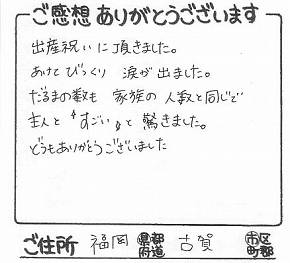 ご感想ありがとうございます
出産祝いに頂きました。
あけてびっくり 涙が出ました。
だるまの数も 家族の人数と同じで
主人と『すごい』と驚きました。
どうもありがとうございました
ご住所 福岡 都道府県 古賀 市区町郡